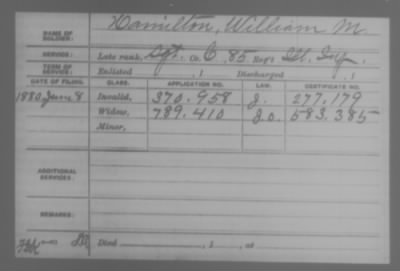 NAME OF SOLDIER: Hamilton, William M.
SERVICE: Late rank, Sgt. Co. C, 85 Reg't Ill. Inf.
TERM OF SERVICE: Enlisted , 1 Discharged , 1
DATE OF FILING. CLASS. APPLICATION NO. LAW. CERTIFICATE NO.
1880 June 8 Invalid, 370.958 g. 277.179
Widow, 789.410 g.o. 583.385
Minor,
ADDITIONAL SERVICES:
REMARKS:
Died , 1 , at